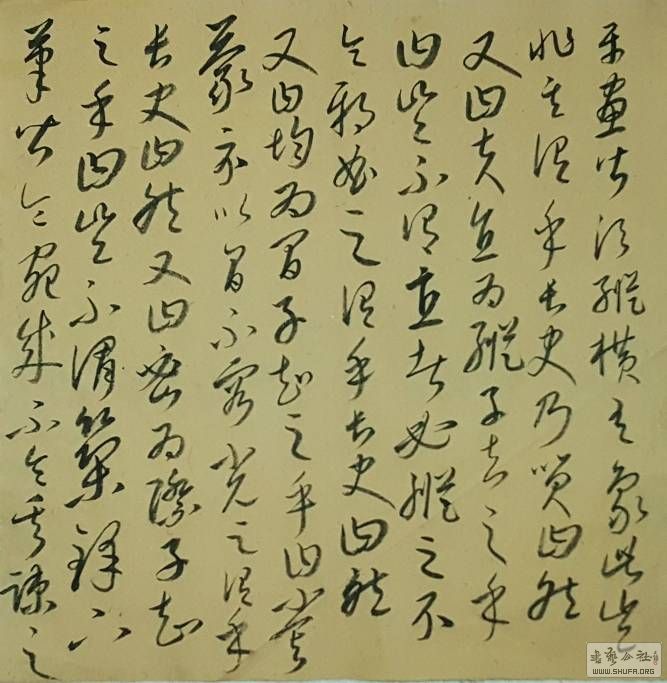 平畫皆須縱橫有象此豈
非其謂乎長史乃笑曰然
又曰夫直為縱子知之乎
曰豈不謂直者必縱之不
令邪曲之謂乎長史曰然
又曰均為間子知之乎曰嘗
蒙示以間不容光之謂乎
長史曰然又曰密為際子知
之乎曰豈不謂築鋒下
筆皆令宛成不令其疎之
WWW.SHUFA.ORG